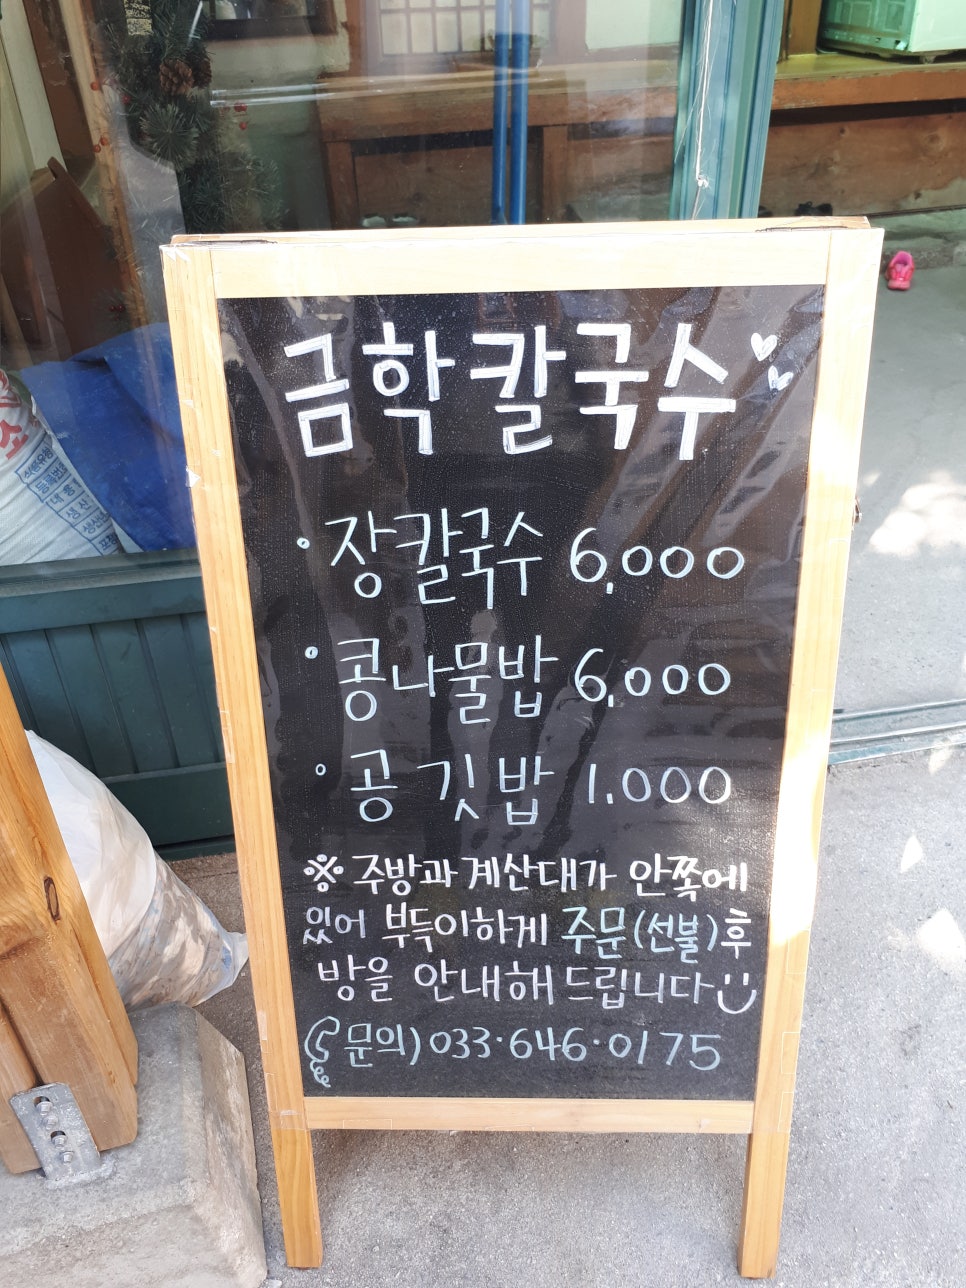 금학칼국수
· 장칼국수 6,000
· 콩나물밥 6,000
· 공깃밥 1.000
※ 주방과 계산대가 안쪽에
있어 부득이하게 주문(선불)후
방을 안내해 드립니다
문의) 033·646·0175